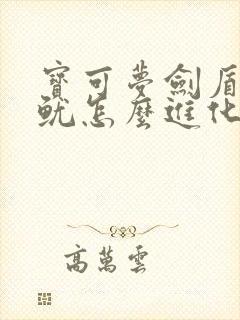 寶可夢劍盾
魷怎麼進化
高萬雲